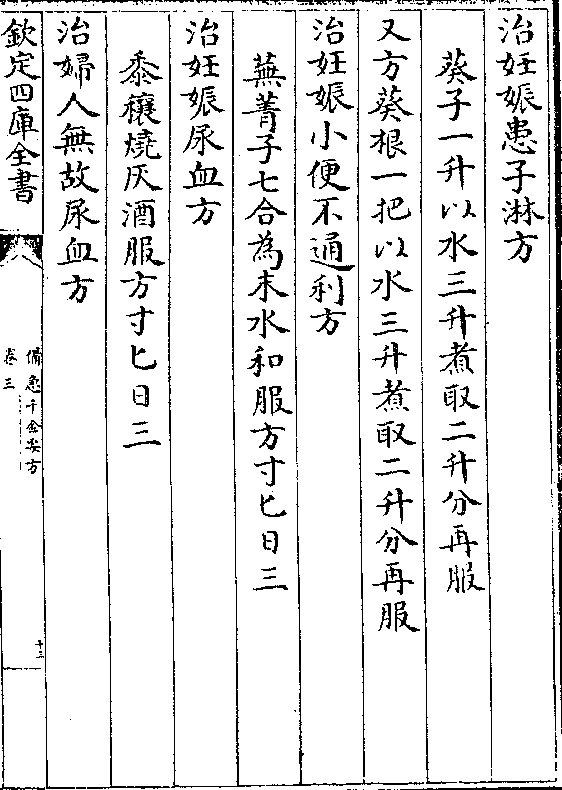 治妊娠患子淋方
葵子一升以水三升煮取二升分再服
又方葵根一把以水三升煮取二升分再服
治妊娠小便不通利方
蕪菁子七合為末水和服方寸匕日三
治妊娠尿血方
黍穰燒灰酒服方寸匕日三
治婦人無故尿血方
欽定四庫全書
備急千金要方
卷三
十三